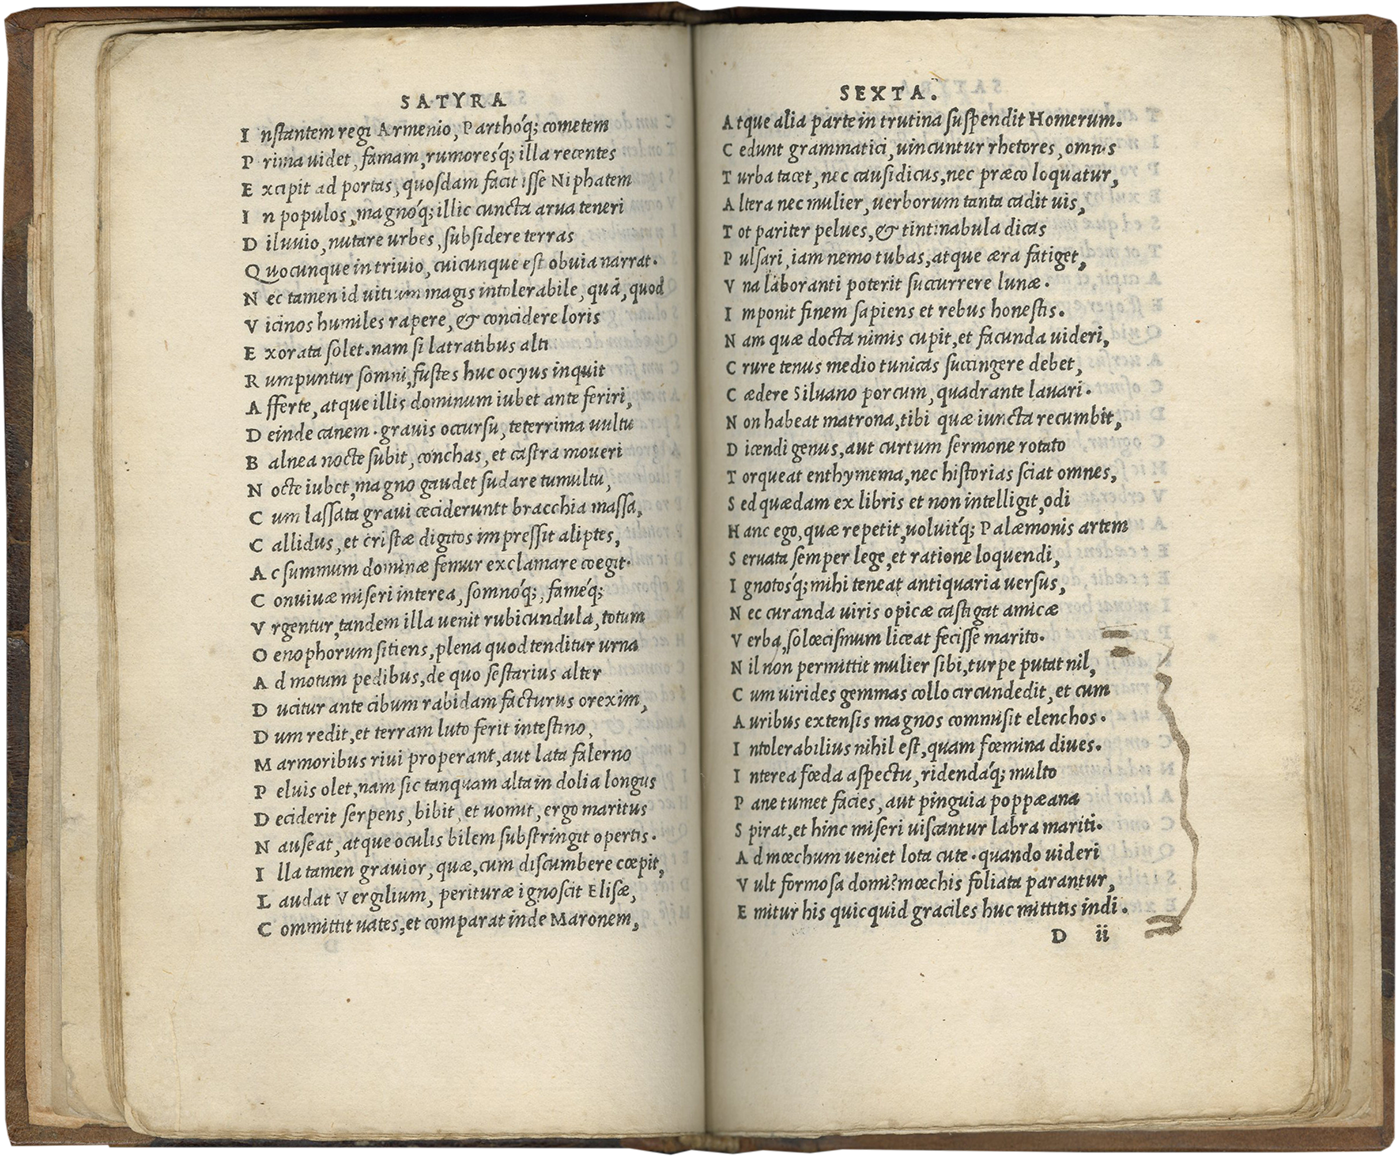 SATYRA
I nstantem regi Armenio, Parthóq; cometem
P rima uidet, famam, rumoresq́; illa recentes
E xcipit ad portas, quosdam facit isse Niphatem
I n populos, magnóq; illic cuncta arua teneri
D iluuio, nutare urbes, subsidere terras
Q uocunque in triuio, cuicunque est obuia narrat.
N ec tamen id uitium magis intolerabile, quā, quod
V icinos humiles rapere, & concidere loris
E xorata solet. nam si latratibus alti
R umpuntur somni, fustes huc ocyus inquit
A fferte, atque illis dominum iubet ante feriri,
D einde canem. grauis occursu, teterrima uultu
B alnea nocte subit, conchas, et castra moueri
N octe iubet, magno gaudet sudare tumultu,
C um lassata graui ceciderunt bracchia massa,
C allidus, et cristæ digitos impressit aliptes,
A c summum dominæ femur exclamare coegit.
C onuiuæ miseri interea, somnóq;, faméq;
V rgentur, tandem illa uenit rubicundula, totum
O enophorum sitiens, plena quod tenditur urna
A d motum pedibus, de quo sestarius alter
D ucitur ante cibum rabidam facturus orexim,
D um redit, et terram luto ferit intestino,
M armoribus riui properant, aut lata falerno
P eluis olet, nam sic tanquam alta in dolia longus
D eciderit serpens, bibit, et uomit, ergo maritus
N auseat, atque oculis bilem substringit opertis.
I lla tamen grauior, quæ, cum discumbere cœpit,
L audat Vergilium, perituræ ignoscit Elisæ,
C ommittit uates, et comparat inde Maronem,
SEXTA.
A tque alia parte in trutina suspendit Homerum.
C edunt grammatici, uincuntur rhetores, omnis
T urba tacet, nec causidicus, nec præco loquatur,
A ltera nec mulier, uerborum tanta cadit uis,
T ot pariter pelues, & tintinabula dicas
P ulsari, iam nemo tubas, atque æra fatiget,
V na laboranti poterit succurrere lunæ.
I mponit finem sapiens et rebus honestis.
N am quæ docta nimis cupit, et facunda uideri,
C rure tenus medio tunicas succingere debet,
C ædere Siluano porcum, quadrante lauari.
N on habeat matrona, tibi quæ iuncta recumbit,
D icendi genus, aut curtum sermone rotato
T orqueat enthymema, nec historias sciat omnes,
S ed quædam ex libris et non intelligit, odi
H anc ego, quæ repetit, uoluitq́; Palæmonis artem
S eruata semper lege, et ratione loquendi,
I gnotosq́; mihi teneat antiquaria uersus,
N ec curanda uiris opicæ castigat amicæ
V erba, solœcismum liceat fecisse marito.
N il non permittit mulier sibi, turpe putat nil,
C um uirides gemmas collo circundedit, et cum
A uribus extensis magnos commisit elenchos.
I ntolerabilius nihil est, quam fœmina diues.
I nterea fœda aspectu, ridendáq; multo
P ane tumet facies, aut pinguia poppæana
S pirat, et hinc miseri uiscantur labra mariti.
A d mœchum ueniet lota cute. quando uideri
V ult formosa domi? mœchis foliata parantur,
E mitur his quicquid graciles huc mittitis indi.
D ii